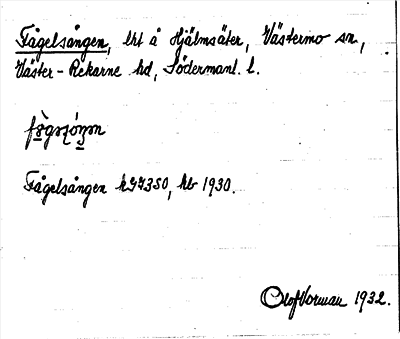 Fågelsången, lht å Hjälmsäter, Västermo sn,
Väster-Rekarne hd, Södermanl. l.
Fågelsången k9J3S0, hb 1930.
Olof Vorman 1932.